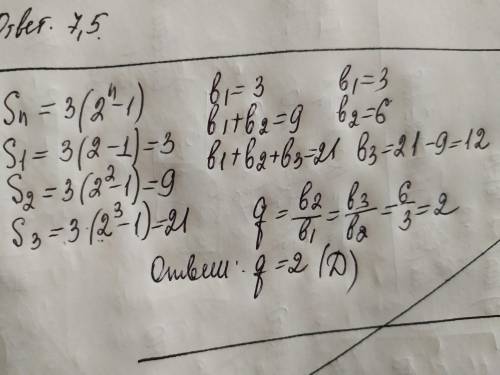 Ответ. 7,5.
Sn = 3(2^n-1) b1 = 3 b1 = 3
S1 = 3(2-1) = 3 b1+b2 = 9 b2 = 6
S2 = 3(2^2-1) = 9 b1+b2+b3 = 21 b3 = 21-9 = 12
S3 = 3·(2^3-1) = 21 q = b2/b1 = b3/b2 = 6/3 = 2
Ответ: q = 2 (Д)